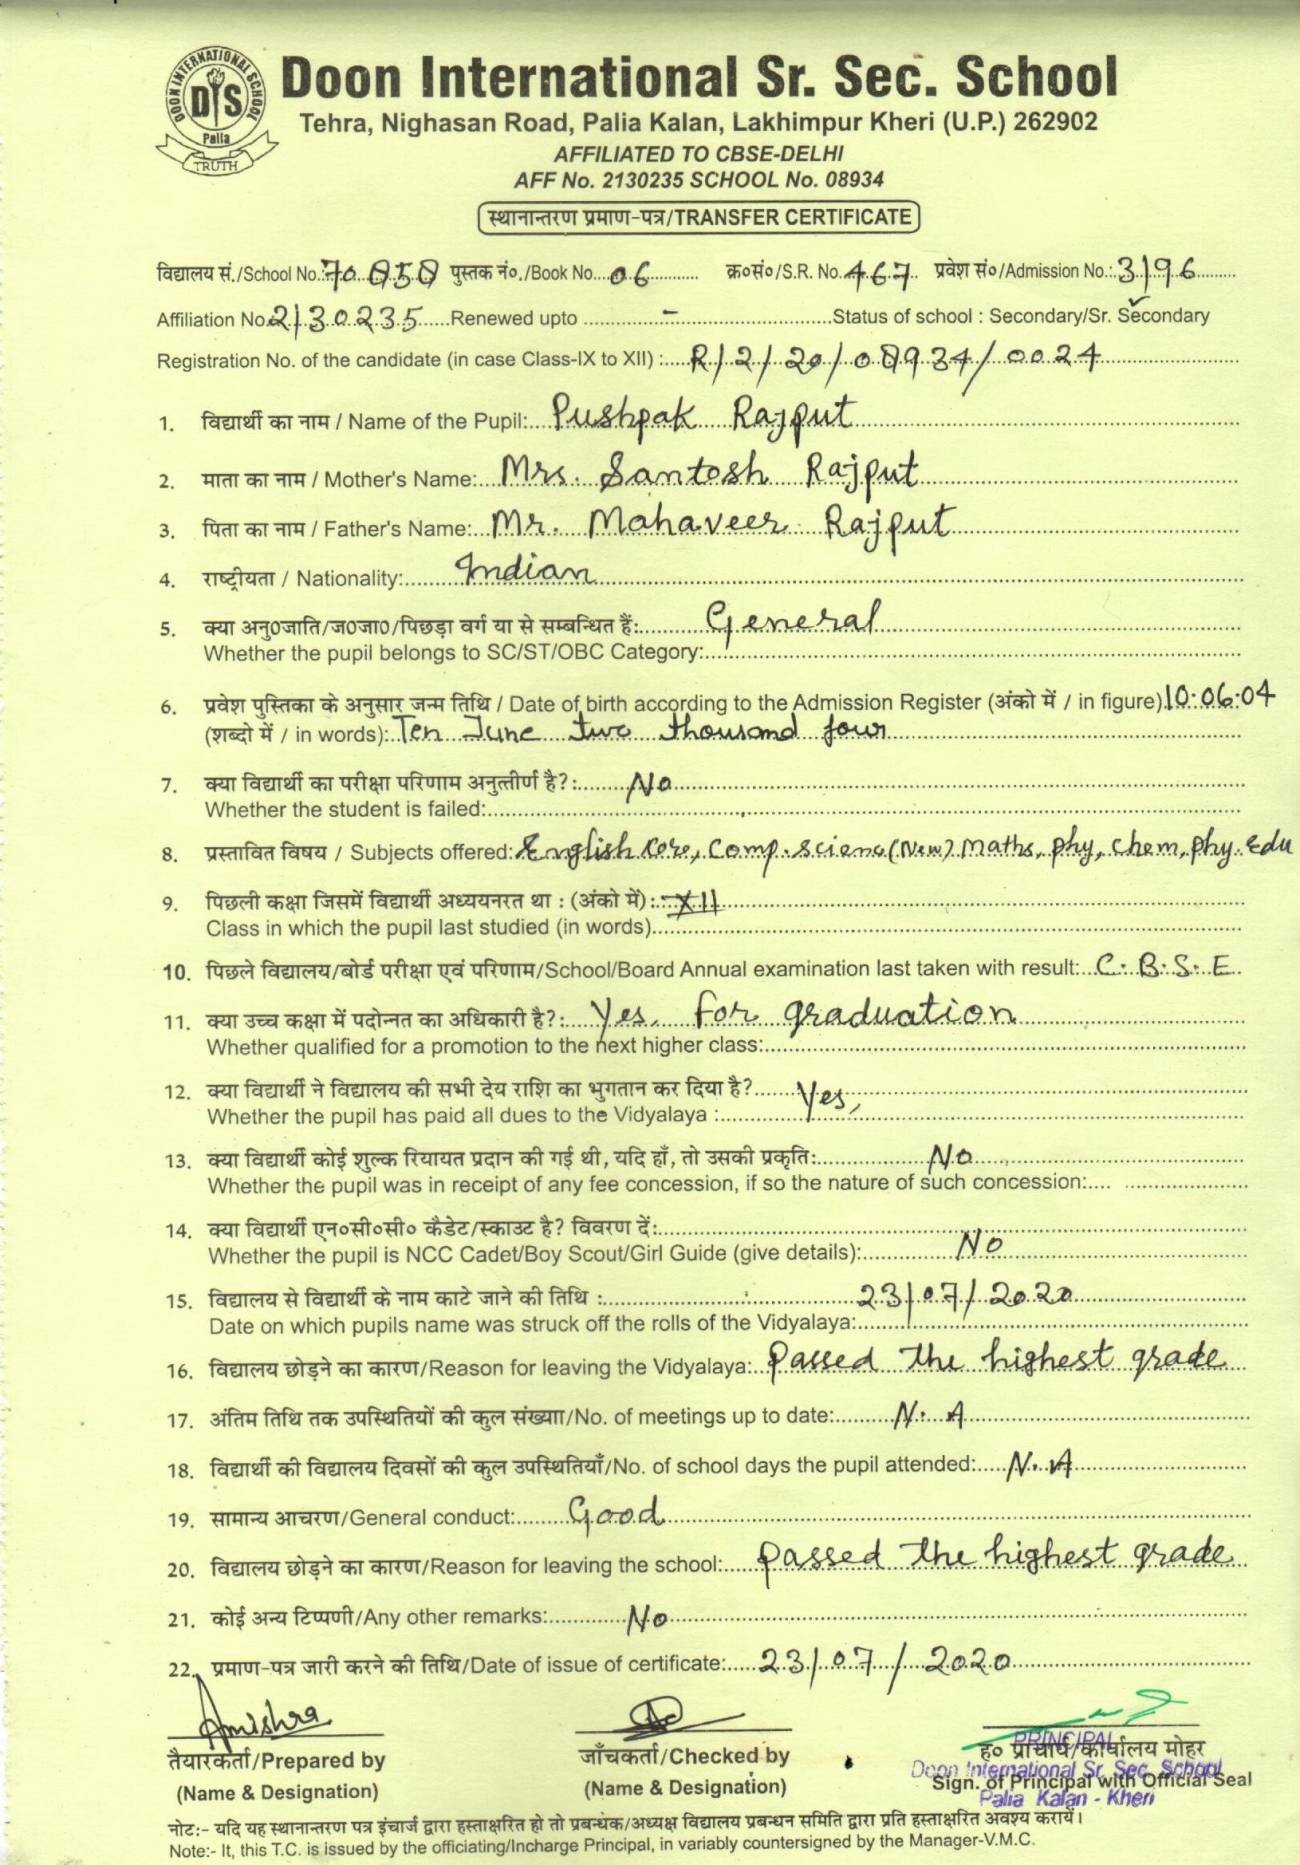 DOON INTERNATIONAL SCHOOL
DIS
Palia
TRUTH
Doon International Sr. Sec. School
Tehra, Nighasan Road, Palia Kalan, Lakhimpur Kheri (U.P.) 262902
AFFILIATED TO CBSE-DELHI
AFF No. 2130235 SCHOOL No. 08934
स्थानान्तरण प्रमाण-पत्र/TRANSFER CERTIFICATE
विद्यालय सं./School No.: 70858 पुस्तक नं०./Book No... 06 क्र०सं०/S.R. No. 467 प्रवेश सं०/Admission No.: 3196
Affiliation No. 2130235 Renewed upto - Status of school : Secondary/Sr. Secondary ✓
Registration No. of the candidate (in case Class-IX to XII) : R/2/20/08934/0024
1. विद्यार्थी का नाम / Name of the Pupil: Pushpak Rajput
2. माता का नाम / Mother's Name: Mrs. Santosh Rajput
3. पिता का नाम / Father's Name: Mr. Mahaveer Rajput
4. राष्ट्रीयता / Nationality: Indian
5. क्या अनु०जाति/ज०जा०/पिछड़ा वर्ग या से सम्बन्धित हैं: General
Whether the pupil belongs to SC/ST/OBC Category:
6. प्रवेश पुस्तिका के अनुसार जन्म तिथि / Date of birth according to the Admission Register (अंको में / in figure) 10:06:04
(शब्दो में / in words): Ten June two thousand four
7. क्या विद्यार्थी का परीक्षा परिणाम अनुत्तीर्ण है? : No
Whether the student is failed:
8. प्रस्तावित विषय / Subjects offered: English core, Comp. scienc(New) Maths, phy, chem, phy. Edu
9. पिछली कक्षा जिसमें विद्यार्थी अध्ययनरत था : (अंको में) : XII
Class in which the pupil last studied (in words)
10. पिछले विद्यालय/बोर्ड परीक्षा एवं परिणाम/School/Board Annual examination last taken with result: C.B.S.E
11. क्या उच्च कक्षा में पदोन्नत का अधिकारी है? : Yes, for graduation
Whether qualified for a promotion to the next higher class:
12. क्या विद्यार्थी ने विद्यालय की सभी देय राशि का भुगतान कर दिया है? Yes,
Whether the pupil has paid all dues to the Vidyalaya :
13. क्या विद्यार्थी कोई शुल्क रियायत प्रदान की गई थी, यदि हाँ, तो उसकी प्रकृति: No
Whether the pupil was in receipt of any fee concession, if so the nature of such concession:
14. क्या विद्यार्थी एन०सी०सी० कैडेट/स्काउट है? विवरण दें:
Whether the pupil is NCC Cadet/Boy Scout/Girl Guide (give details): No
15. विद्यालय से विद्यार्थी के नाम काटे जाने की तिथि : 23/07/2020
Date on which pupils name was struck off the rolls of the Vidyalaya:
16. विद्यालय छोड़ने का कारण/Reason for leaving the Vidyalaya: Passed the highest grade
17. अंतिम तिथि तक उपस्थितियों की कुल संख्या/No. of meetings up to date: N.A
18. विद्यार्थी की विद्यालय दिवसों की कुल उपस्थितियाँ/No. of school days the pupil attended: N.A
19. सामान्य आचरण/General conduct: Good
20. विद्यालय छोड़ने का कारण/Reason for leaving the school: Passed the highest grade
21. कोई अन्य टिप्पणी/Any other remarks: No
22. प्रमाण-पत्र जारी करने की तिथि/Date of issue of certificate: 23/07/2020
Amishra
तैयारकर्ता/Prepared by
(Name & Designation)
जाँचकर्ता/Checked by
(Name & Designation)
PRINCIPAL
ह० प्राचार्य/कार्यालय मोहर
Doon International Sr. Sec. School
Sign. of Principal with Official Seal
Palia Kalan - Kheri
नोट:- यदि यह स्थानान्तरण पत्र इंचार्ज द्वारा हस्ताक्षरित हो तो प्रबन्धक/अध्यक्ष विद्यालय प्रबन्धन समिति द्वारा प्रति हस्ताक्षरित अवश्य करायें।
Note:- It, this T.C. is issued by the officiating/Incharge Principal, in variably countersigned by the Manager-V.M.C.